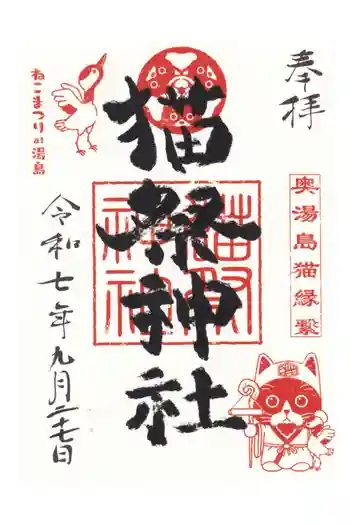 奉拝
奥湯島猫縁繋
猫祭神社
ねこまつり at 湯島
令和七年九月二十七日